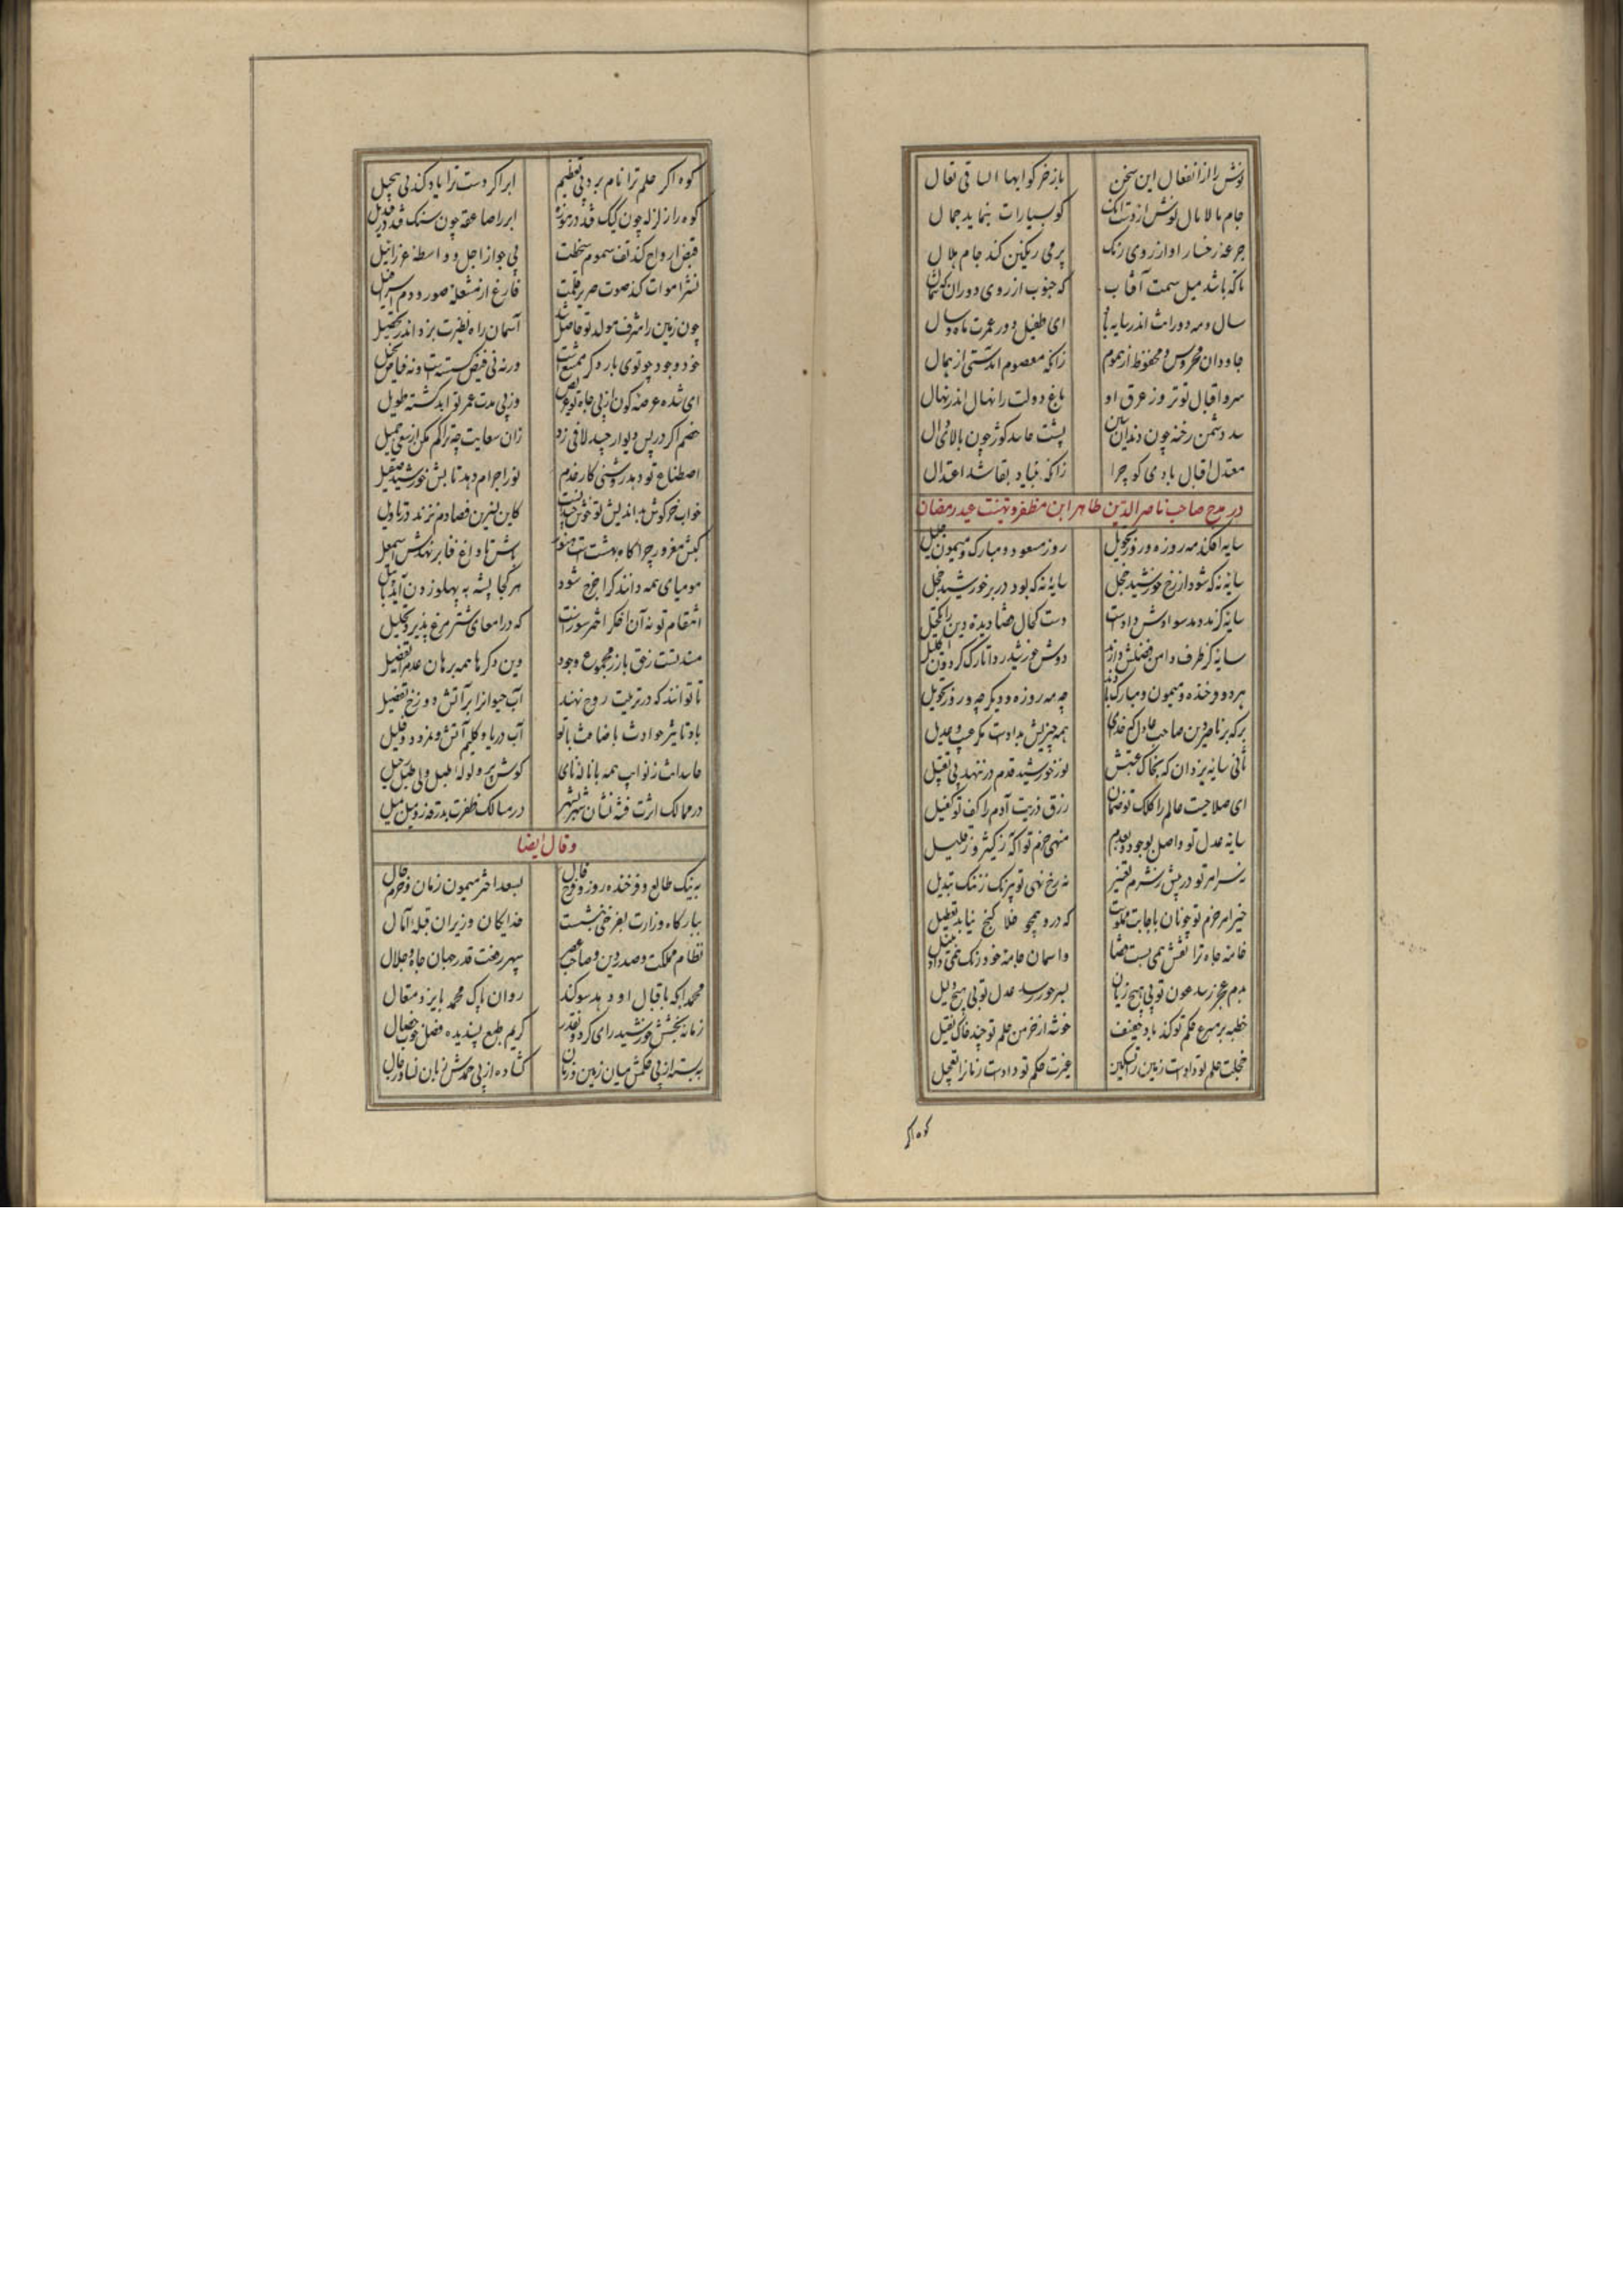 نوش را از انفعال این سخن باز خر کو ایها الساقی تعال
جام مالامال نوش از دست آنک کو بسیارات بنماید جمال
جرعه رخسار او از روی رنک پر می رنکین کند جام هلال
تا که باشد میل سمت آفتاب که جنوب از روی دوران که شمال
سال و مه دورانت اندر سایه باد ای طفیل دور عمرت ماه و سال
جاودان محروس و محفوظ از هموم زانکه معصوم آمدستی از همال
سرو اقبال تو تر وز عرق او باغ دولت را نهال اندر نهال
سد دشمن رخنه چون دندان سین پشت حاسد کوژ چون بالای دال
معتدل اقبال بادی کو چرا زانکه بنیاد بقا شد اعتدال
در مدح صاحب ناصر الدین طاهر ابن مظفر و تهنیت عید رمضان
سایه افکند مه روزه و روز تحویل روز مسعود و مبارک و میمون جلیل
سایه نه که شود از رخ خورشید خجل سایه نه که بود در بر خورشید خجل
سایه کز مدد مد سوادش دادست دست کحال قضا دیده دین را تکحیل
سایه کز طرف دامن فضلش دارند دوش خورشید ردا تارک کردون اکلیل
هر دو فرخنده و میمون و مبارک بادند چه مه روزه و دیکر چه و روز تحویل
برکه بر ناصر دین صاحب عادل که خدای همه چیزیش بدادست مکر عیب و عدیل
ثانی سایه یزدان که بخاک عتبش نور خورشید قدم در ننهد بی تقبیل
ای صلاحیت عالم را کلک تو ضمان رزق ذریت آدم را کف تو کفیل
سایه عدل تو واصل بوجود و بعدم منهی حزم تو آکه ز کثیر و ز قلیل
نه سر امر تو در پیش ز شرم تغییر نه رخ نهی تو پررنک ز ننک تبدیل
خیر امر حزم تو چونان باجابت مقرونست که درو همچو خلا کنج نیابد تعطیل
خامه جاه ترا نقش همی بست قضا واسمان جامه خود رنک همی داد به نیل
هم عجز رسد عون تو بی هیچ زیان بسر جور رسد عدل تو بی هیچ دلیل
خطبه بر مسرع حکم تو کند باد خفیف خوشه از خرمن حلم تو چند خاک ثقیل
خجلت حلم تو دادست زمین را تسکین غیرت حکم تو دادست زمان را تعجیل
کوه اکر
کوه اکر حلم ترا نام برد بی تعظیم ابر اکر دست ترا یاد کند بی تبجیل
کوه را زلزله چون کیک فتد در موزه ابر را صاعقه چون سنک فتد در قندیل
قبض ارواح کند تف سموم سخطت بی جواز اجل و واسطه عزرائیل
نشر اموات کند صوت صریر قلمت فارغ از مشعله صور و دم اسرافیل
چون زمین را شرف مولد تو حاصل شد آسمان راه نظیرت بزد اندر تحصیل
خود وجود چو توی بار دکر ممتنع است ورنه نی فیض کسستست و نه فیاض بخیل
ای شده عرصه کون از پی جاه تو عریض وز پی مدت عمر تو ابد کشته طویل
خصم اکر در پس دیوار حسد لافی زد زان سعایت چه تراکم مکن از سعی جمیل
اصطناع تو دهد روشنی کار خدم نور اجرام دهد تابش خورشید صقیل
خواب خرکوش بداندیش تو خوش چندانست کاین شیرین قضا دم نزند در تاویل
کبش مغرور چراکاه بهشتست هنوز باش تا داغ فنا بر نهدش اسمعیل
مومیای همه دانند کرا خرج شود هر کجا پشه به پهلو زدن آید با پیل
انتقام تو نه آن اخکر اختر سوزست که در امعای شترمرغ پذیرد تحلیل
مسند تست ز حق بارز مجموع وجود وین دکرها همه برهان عدم را تفضیل
تا توانند که در تربیت روح نهند آب حیوان را بر آتش دوزخ تفضیل
باد تاثیر حوادث باضافت با تو آب دریا و کلیم آتش و نمرود و خلیل
حاسدانت ز نوایب همه با ناله نای کوش پر ولوله طبل ولی طبل رحیل
در ممالک اثرت فتنه نشان شهر بشهر در مسالک ظفرت بدرقه زو میل بمیل
وقال ایضا
به نیک طالع و فرخنده روز و فرخ فال بسعد اختر میمون زمان و خرم حال
ببارکاه وزارت بفرخی بنشست خدایکان وزیران قبله آمال
نظام مملکت و صدر دین و صاحب عصر سپهر رفعت قدر جهان جاه و جلال
محمد آنکه باقبال او دهد سوکند روان پاک محمد بایزد متعال
زمانه بخشش خورشید رای کردون قدر کریم طبع پسندیده فضل خوب خصال
ببسته از پی حکمش میان زمین و زمان کشاده از پی حمدش زبان نسا و رجال